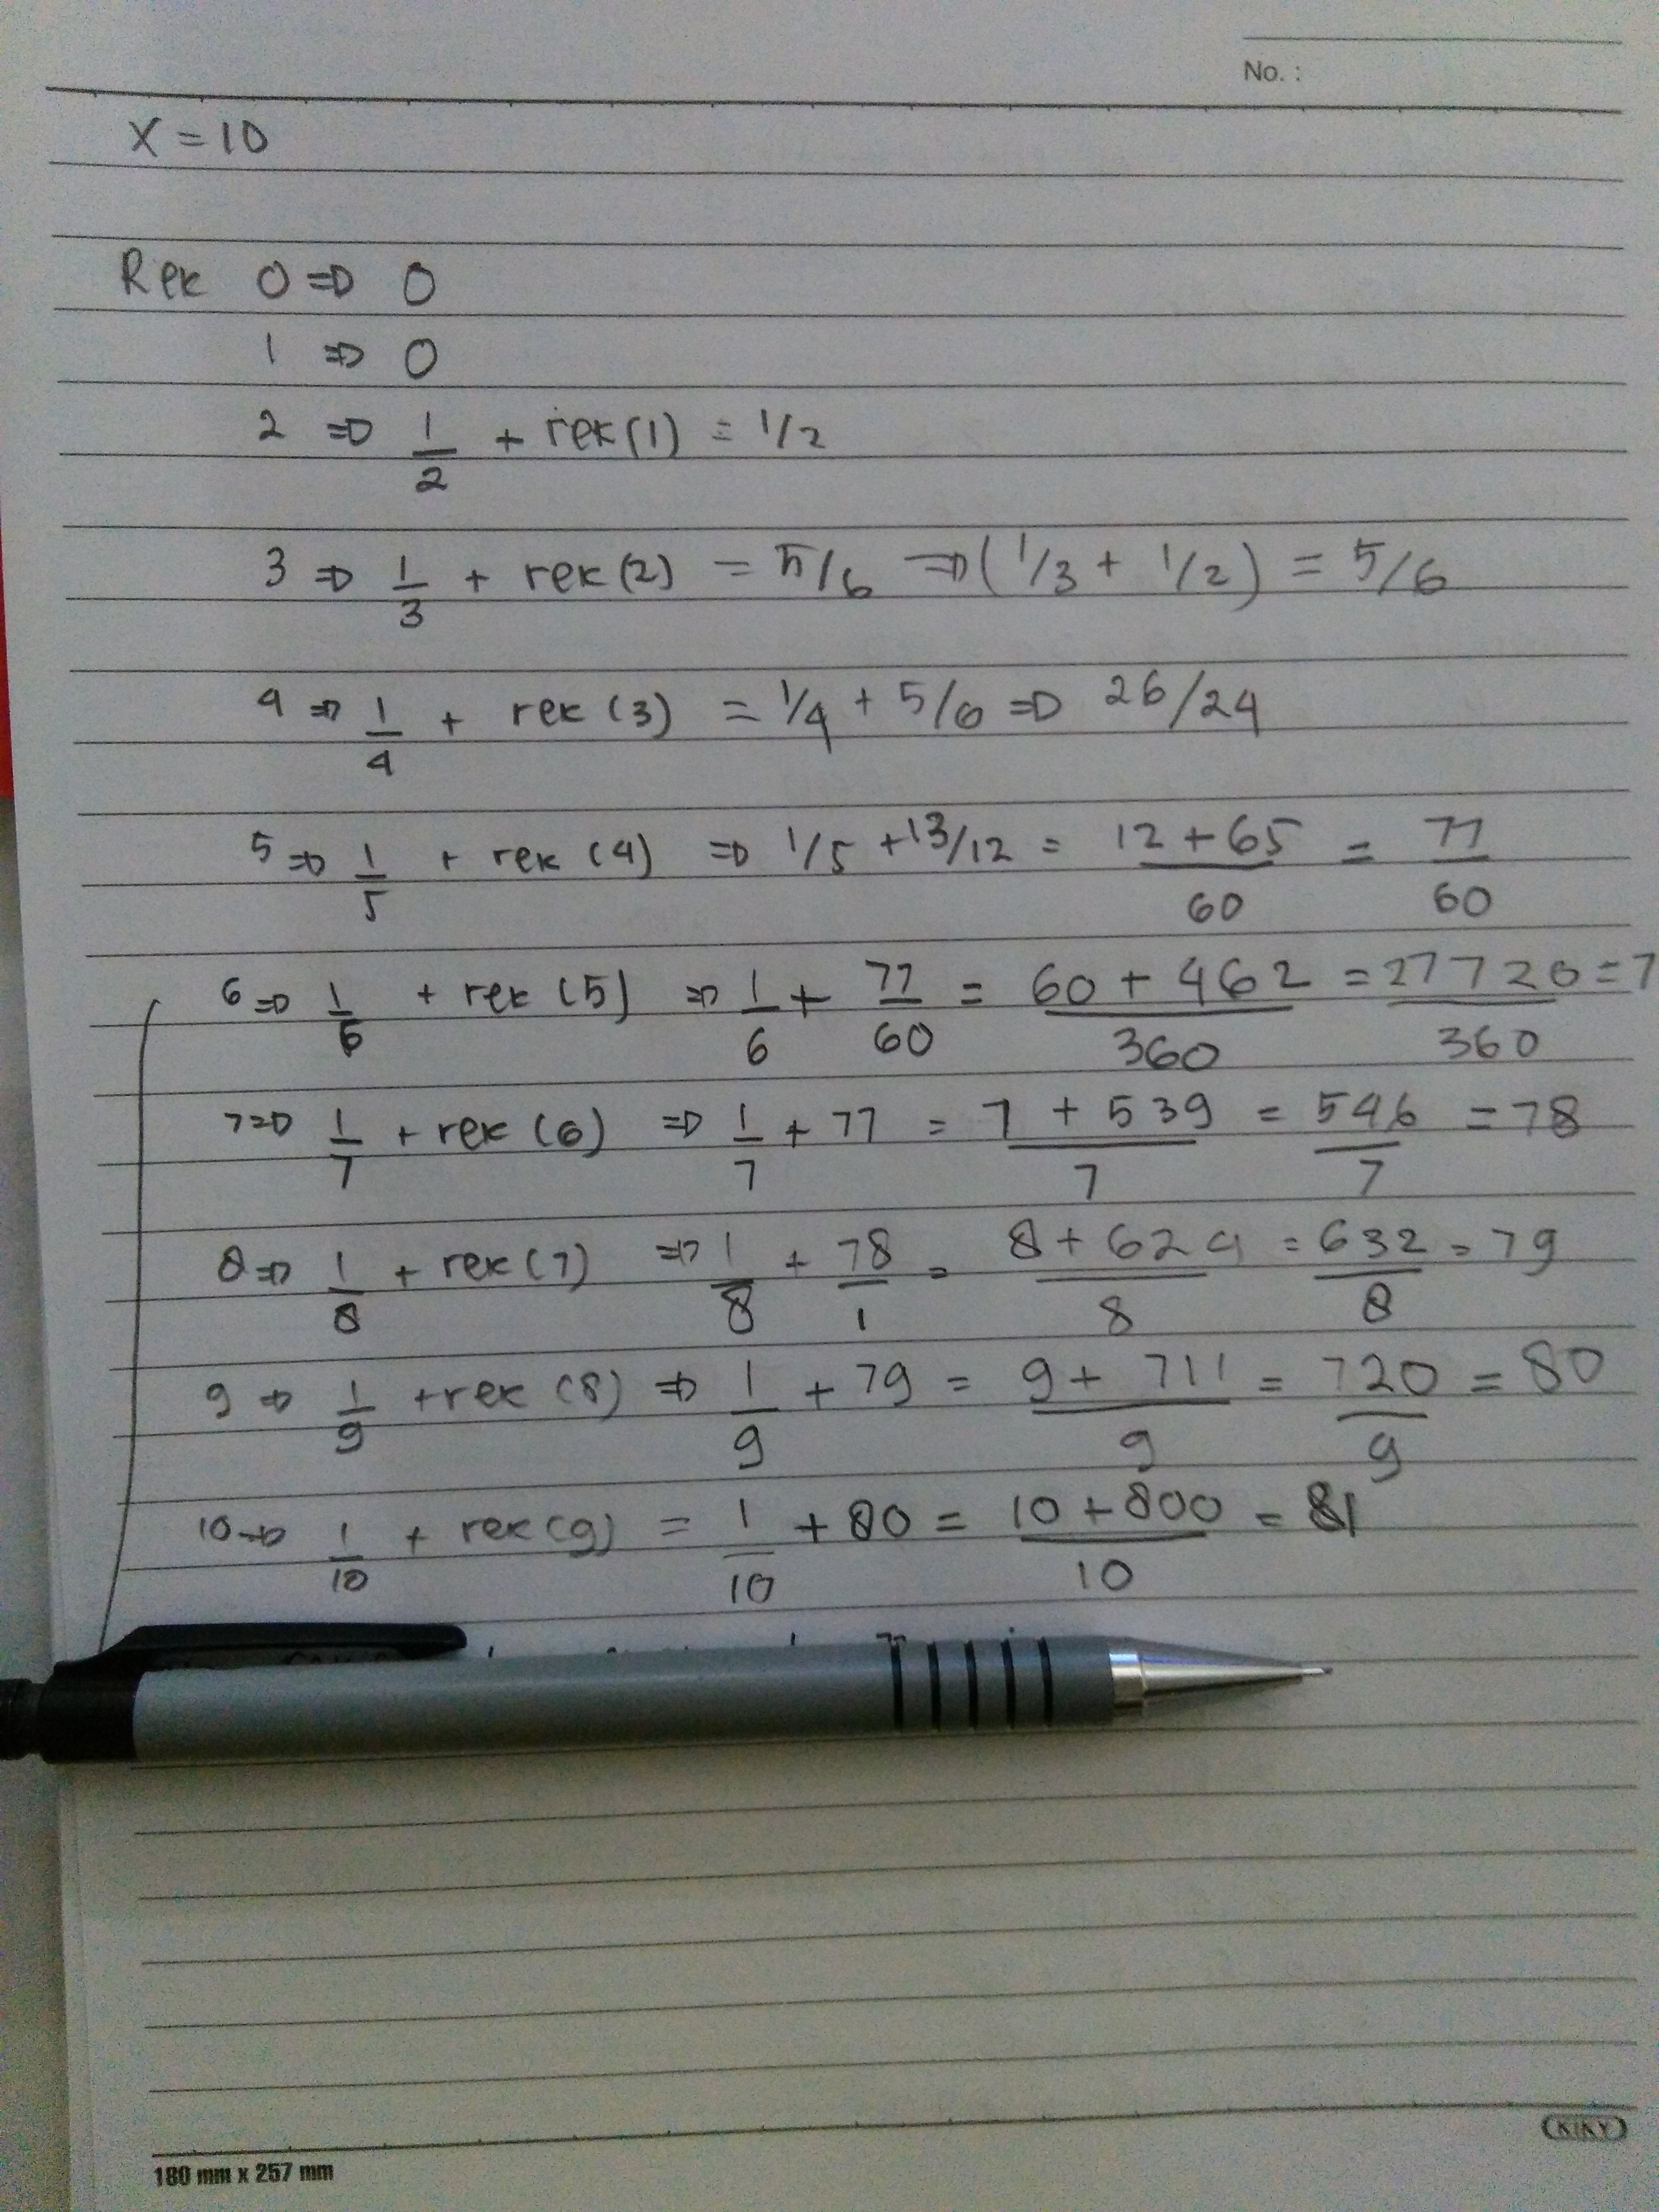 No. :
X = 10
Rek 0 ⇒ 0
1 ⇒ 0
2 ⇒ 1/2 + rek(1) = 1/2
3 ⇒ 1/3 + rek(2) = 5/6 ⇒ (1/3 + 1/2) = 5/6
4 ⇒ 1/4 + rek(3) = 1/4 + 5/6 ⇒ 26/24
5 ⇒ 1/5 + rek(4) ⇒ 1/5 + 13/12 = 12+65/60 = 77/60
6 ⇒ 1/6 + rek(5) ⇒ 1/6 + 77/60 = 60+462/360 = 27720/360 = 7
7 ⇒ 1/7 + rek(6) ⇒ 1/7 + 77 = 7+539/7 = 546/7 = 78
8 ⇒ 1/8 + rek(7) ⇒ 1/8 + 78/1 = 8+624/8 = 632/8 = 79
9 ⇒ 1/9 + rek(8) ⇒ 1/9 + 79 = 9+711/9 = 720/9 = 80
10 ⇒ 1/10 + rek(9) = 1/10 + 80 = 10+800/10 = 81
KIKY
180 mm x 257 mm